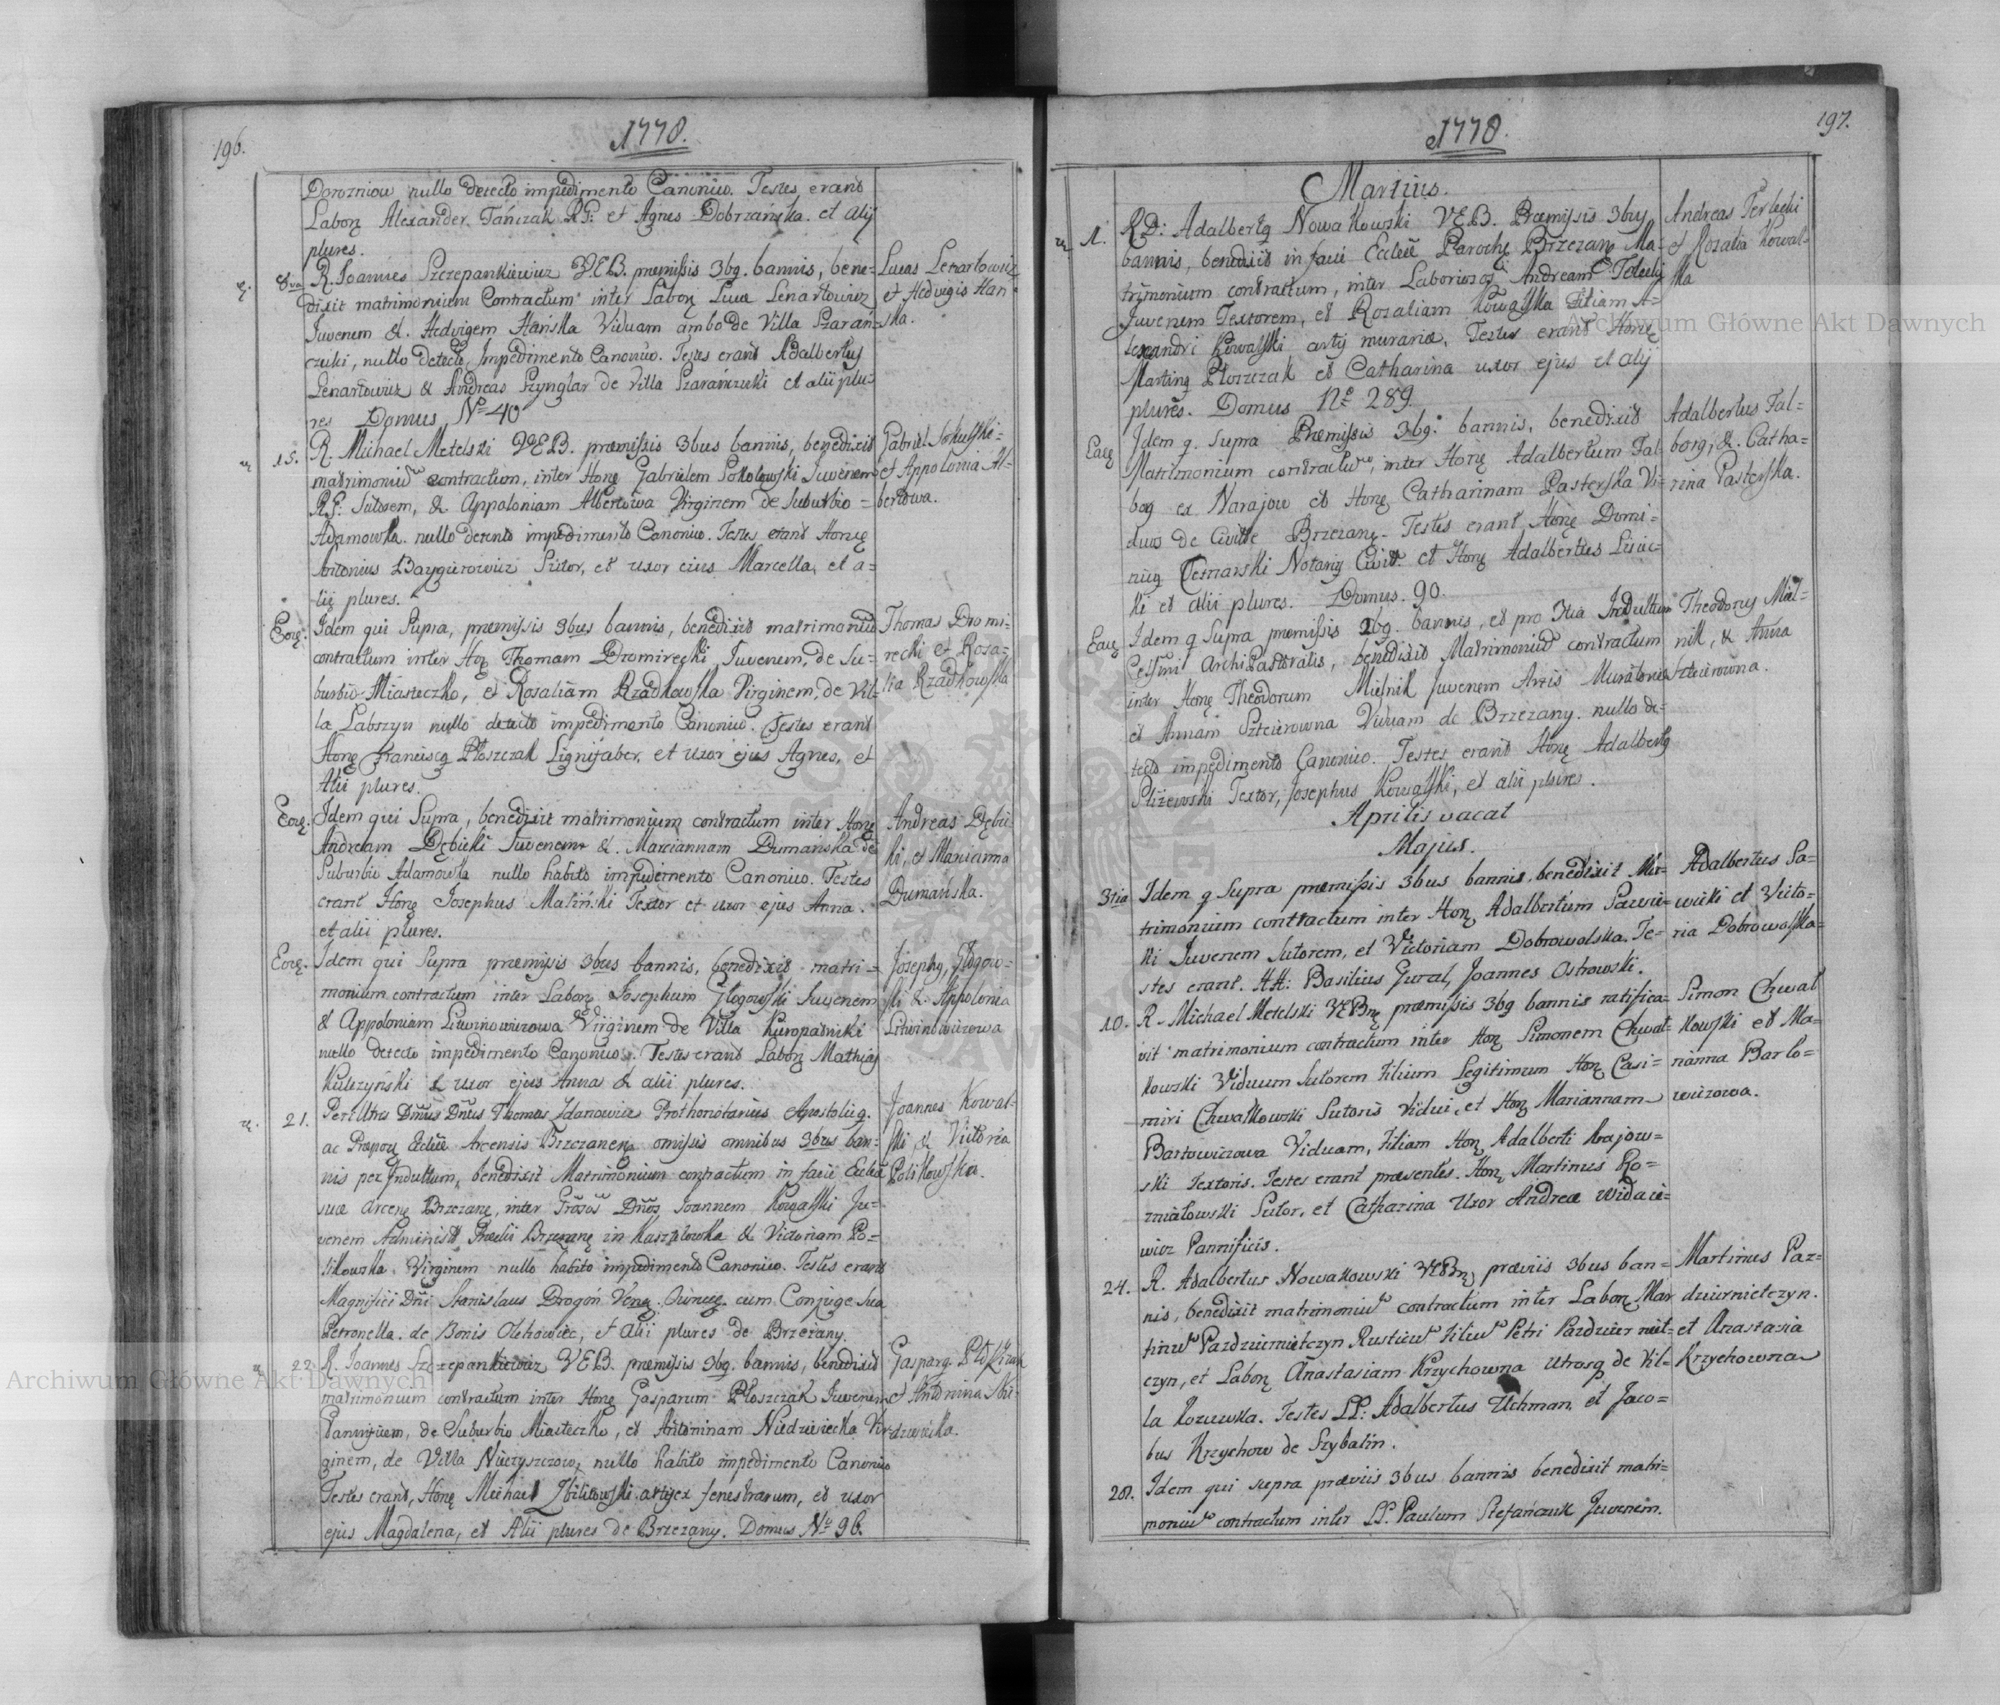 196.
1778.
Dorozniow nullo detecto impedimento Canonico. Testes erant
Labor Alexander Tańczak RG: et Agnes Dobrzańska et alij
plures.
8va R. Joannes Szczepankiewicz V.E.B. præmissis 3bg. bannis, bene-
dixit matrimonium Contractum inter Labor Luca Lenartowicz
Juvenem &. Hedvigem Hańska Viduam ambo de Villa Szarań-
czuki, nullo detecto Impedimento Canonico. Testes erant Adalbertus
Lenartowicz & Andreas Szynglar de Villa Szarańczuki et alii plu-
res Domus No 40
Lucas Lenartowicz
et Hedvigis Han-
ska.
15. R. Michael Metelski VEB. præmissis 3bus bannis, benedixit
matrimoniu contractum, inter Hone Gabrielem Sokolowski Juvenem
RG. Sutorem, &. Appoloniam Albertowa Virginem de Suburbio
Adamowka nullo detento impedimento Canonico. Testes erant Hone
Antonius Baygerowicz Sutor, et uxor eius Marcella, et a-
lij plures.
Gabriel Sokulski
et Appolonia Al-
bertowa.
Eode. Idem qui Supra, præmissis 3bus bannis, benedixit matrimoniu
contractum inter Hone Thomam Dromirecki Juvenem, de Su-
burbio Miasteczko, et Rosaliam Rzadkowska Virginem, de Vil-
la Labszyn nullo detecto impedimento Canonico. Testes erant
Hone Franciscg Płoszczak Lignifaber, et uxor ejus Agnes, et
Alii plures.
Thomas Dromi-
recki et Rosa-
lia Rzadkowska
Eode. Idem qui Supra, benedixit matrimonium contractum inter Hone
Andream Dębicki Juvenem &. Mariannam Dumańska de
Suburbio Adamowka nullo habito impedimento Canonico. Testes
erant Hone Josephus Maliński Textor et uxor ejus Anna.
et alii plures.
Andreas Dębic-
ki, et Marianna
Dumańska.
Eode. Idem qui Supra præmissis 3bus bannis, benedixit matri-
monium contractum inter Labor Josephum Głogowski Juvenem
& Appoloniam Litwinowiczowa Virginem de Villa Kuropatniki
nullo detecto impedimento Canonico. Testes erant Labor Mathias
Kulczyński & uxor ejus Anna & alii plures.
Josephg Głogow-
ski & Appolonia
Litwinowiczowa
21. Perillris Dnus Dnus Thomas Zdanowicz Prothonotarius Apostolicg.
ac Præpog Ecclæ Arcensis Brzezanens omissis omnibus 3bus ban-
nis per Indultum, benedixit Matrimonium contractum in facie Ecclæ
suæ Arcens Brzezane, inter Grosos Dnos Joannem Kowalski Ju-
venem Administr Prædii Brzezane in Kasztlowka & Victoriam Po-
likowska Virginem nullo habito impedimento Canonico. Testes erant
Magnifici Dni Stanislaus Drogoń cum Conjuge Sua
Petronella de Bonis Olchowiec, et Alii plures de Brzezany.
Joannes Kowal-
ski & Victoria
Polikowska.
22. R. Joannes Szczepankiewicz VEB. præmissis 3bg. bannis, benedixit
matrimonium contractum inter Hone Gasparum Płoszczak Juvenem
Pannificem, de Suburbio Miasteczko, et Antoninam Niedzwiecka Vir-
ginem, de Villa Nieczyszczow, nullo habito impedimento Canonico
Testes erant, Hone Michael Zbilitowski artifex fenestrarum, et uxor
ejus Magdalena, et Alii plures de Brzezany. Domus No 96.
Gasparg Płoszczak
et Antonina Nie-
dzwiecka.
1778.
197.
Martius.
1. R.D: Adalbertg Nowakowski VEB. Præmissis 3bus
bannis, benedixit in facie Ecclæ Parochs Brzezans Ma-
trimonium contractum, inter Laboriosos Andream Terlecki
Juvenem Textorem, et Rozaliam Kowalska Filiam A-
lexandri Kowalski artis murariæ, Testes erant Hone
Marting Płoszczak et Catharina uxor ejus et Alij
plures. Domus No 289.
Andreas Terlecki
et Rozalia Kowal-
ska
Eade Idem q. Supra Præmissis 3bg. bannis, benedixit
Matrimonium contractu, inter Hone Adalbertum Fal-
borg ex Narajow et Hone Catharinam Pasterska Vi-
duas de Civitte Brzezane. Testes erant Hone Domi-
nicg Cetnarski Notarig Civit. et Hone Adalbertus Lisic-
ki et alii plures. Domus. 90.
Adalbertus Fal-
borg, &. Catha-
rina Pasterska.
Eade Idem q Supra præmissis 2bg. bannis, et pro 3tia Indultum
Celssmi ArchiPastoralis, benedixit Matrimoniu contractum
inter Hone Theodorum Mielnik Juvenem Artis Muratoriæ
et Annam Szteierowna Viduam de Brzezany. nullo de-
tecto impedimento Canonico. Testes erant Hone Adalbertg
Sliżewski Textor, Josephus Kowalski, et alii plures.
Theodorus Miel-
nik, & Anna
Sztecirowna.
Aprilis vacat
Majus.
3tia Idem q Supra præmissis 3bus bannis, benedixit Ma-
trimonium contractum inter Hon Adalbertum Sawic-
ki Juvenem Sutorem, et Victoriam Dobrowolska. Te-
stes erant. HH: Basilius Gural, Joannes Ostrowski.
Adalbertus Sa-
wicki et Victo-
ria Dobrowolska
10. R. Michael Metelski VEBg præmissis 3bg bannis ratifica-
vit matrimonium contractum inter Hon Simonem Chwał-
kowski Viduum Sutorem Filium Legitimum Hon Casi-
miri Chwałkowski Sutoris Vidui, et Hon Mariannam
Bartowiczowa Viduam, Filiam Hon Adalberti Krajow-
ski Textoris. Testes erant præsentes. Hon Martinus Ro-
zmiałowski Sutor, et Catharina Uxor Andreæ Widaie-
wicz Pannificis.
Simon Chwał
kowski et Ma-
rianna Barto-
wiczowa.
24. R. Adalbertus Nowakowski VEBg præviis 3bus ban-
nis, benedixit matrimoniu contractum inter Labor Mar
tinu Pazdzierniczyn Rusticu Filiu Petri Pazdziernic-
czyn, et Labor Anastasiam Krzychowna utrosq de Vil-
la Kozuwka. Testes LL: Adalbertus Uchman et Jaco-
bus Krzychow de Szybalin.
Martinus Paz-
dzierniczyn.
et Anastasia
Krzychowna
28. Idem qui supra præviis 3bus bannis benedixit matri-
moniu contractum inter LL. Paulum Stefańczuk Juvenem.
Archiwum Główne Akt Dawnych
Archiwum Główne Akt Dawnych